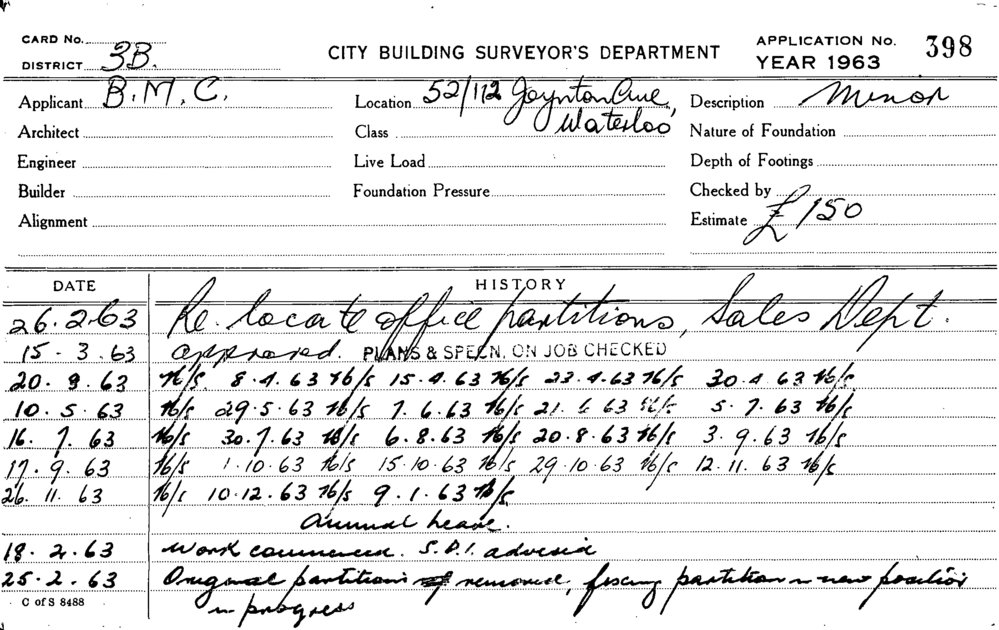 CARD No.
DISTRICT 3B.
CITY BUILDING SURVEYOR'S DEPARTMENT
APPLICATION No. 398
YEAR 1963
Applicant B.M.C.
Location 52/112 Joynton Ave,
Waterloo
Description Minor
Architect
Class
Nature of Foundation
Engineer
Live Load
Depth of Footings
Builder
Foundation Pressure
Checked by
Alignment
Estimate £150
DATE
HISTORY
26.2.63 Re. locate office partitions, Sales Dept.
15.3.63 approved. PLANS & SPECN. ON JOB CHECKED
20.3.63 N/S 8.4.63 N/S 15.4.63 N/S 23.4.63 N/S 30.4.63 N/S
10.5.63 N/S 29.5.63 N/S 7.6.63 N/S 21.6.63 N/S 5.7.63 N/S
16.7.63 N/S 30.7.63 N/S 6.8.63 N/S 20.8.63 N/S 3.9.63 N/S
17.9.63 N/S 1.10.63 N/S 15.10.63 N/S 29.10.63 N/S 12.11.63 N/S
26.11.63 N/S 10.12.63 N/S 9.1.63 N/S.
Annual leave.
18.2.63 Work commenced. S.D.I. advised
25.2.63 Original partitions removed, fixing partition in new position
in progress
C of S 8488